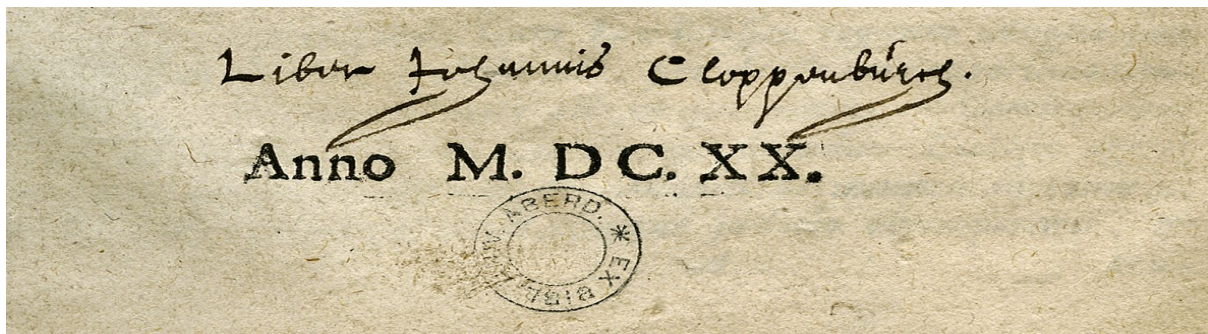 Liber Johannis Cloppenbúrch.
Anno M. DC. XX.
* EX BIBL. VNIV. ABERD.